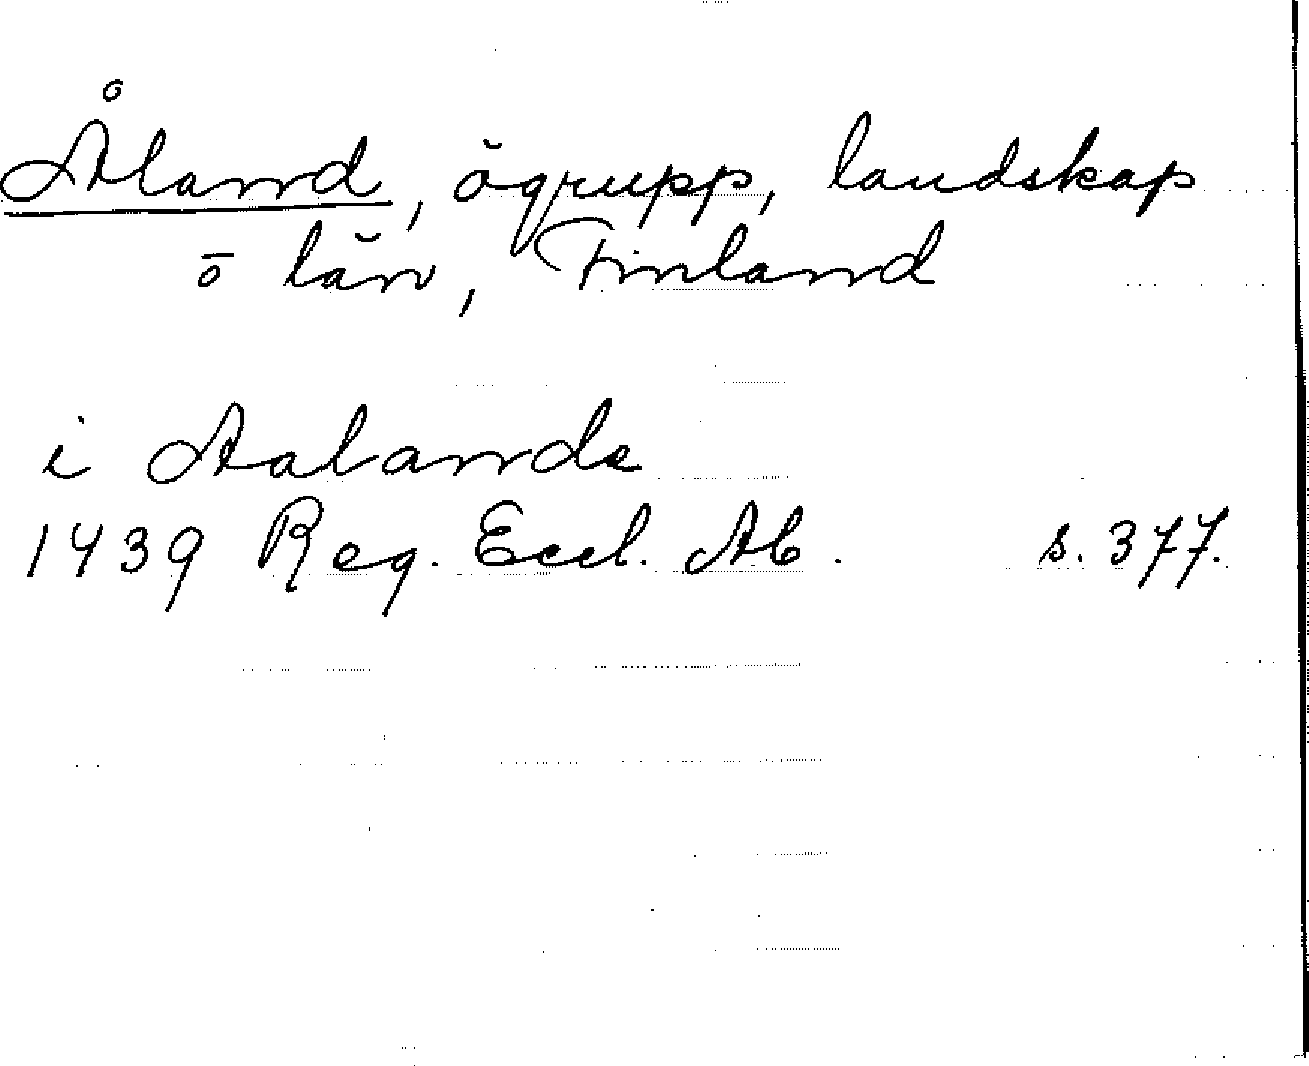 Åland, ögrupp, landskap
o län, Finland
i Aalande
1439 Reg. Eccl. Ab. s. 377.